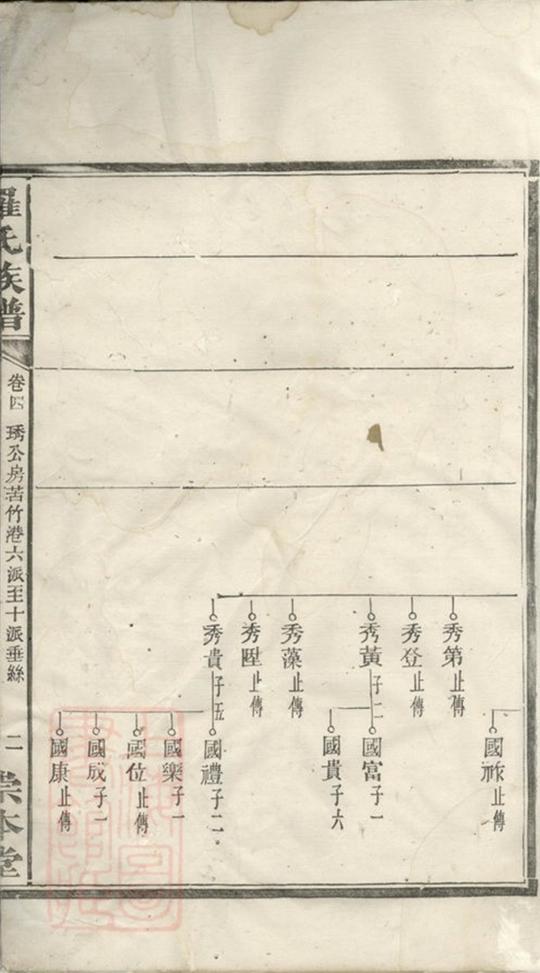 秀第止傳
秀登止傳
秀黃子二
秀藻止傳
秀陞止傳
秀貴子五
國祚止傳
國富子一
國貴子六
國禮子二
國樂子一
國位止傳
國成子一
國康止傳
羅氏族譜
卷四
琇公房苦竹港六派至十派垂絲
二
崇本堂